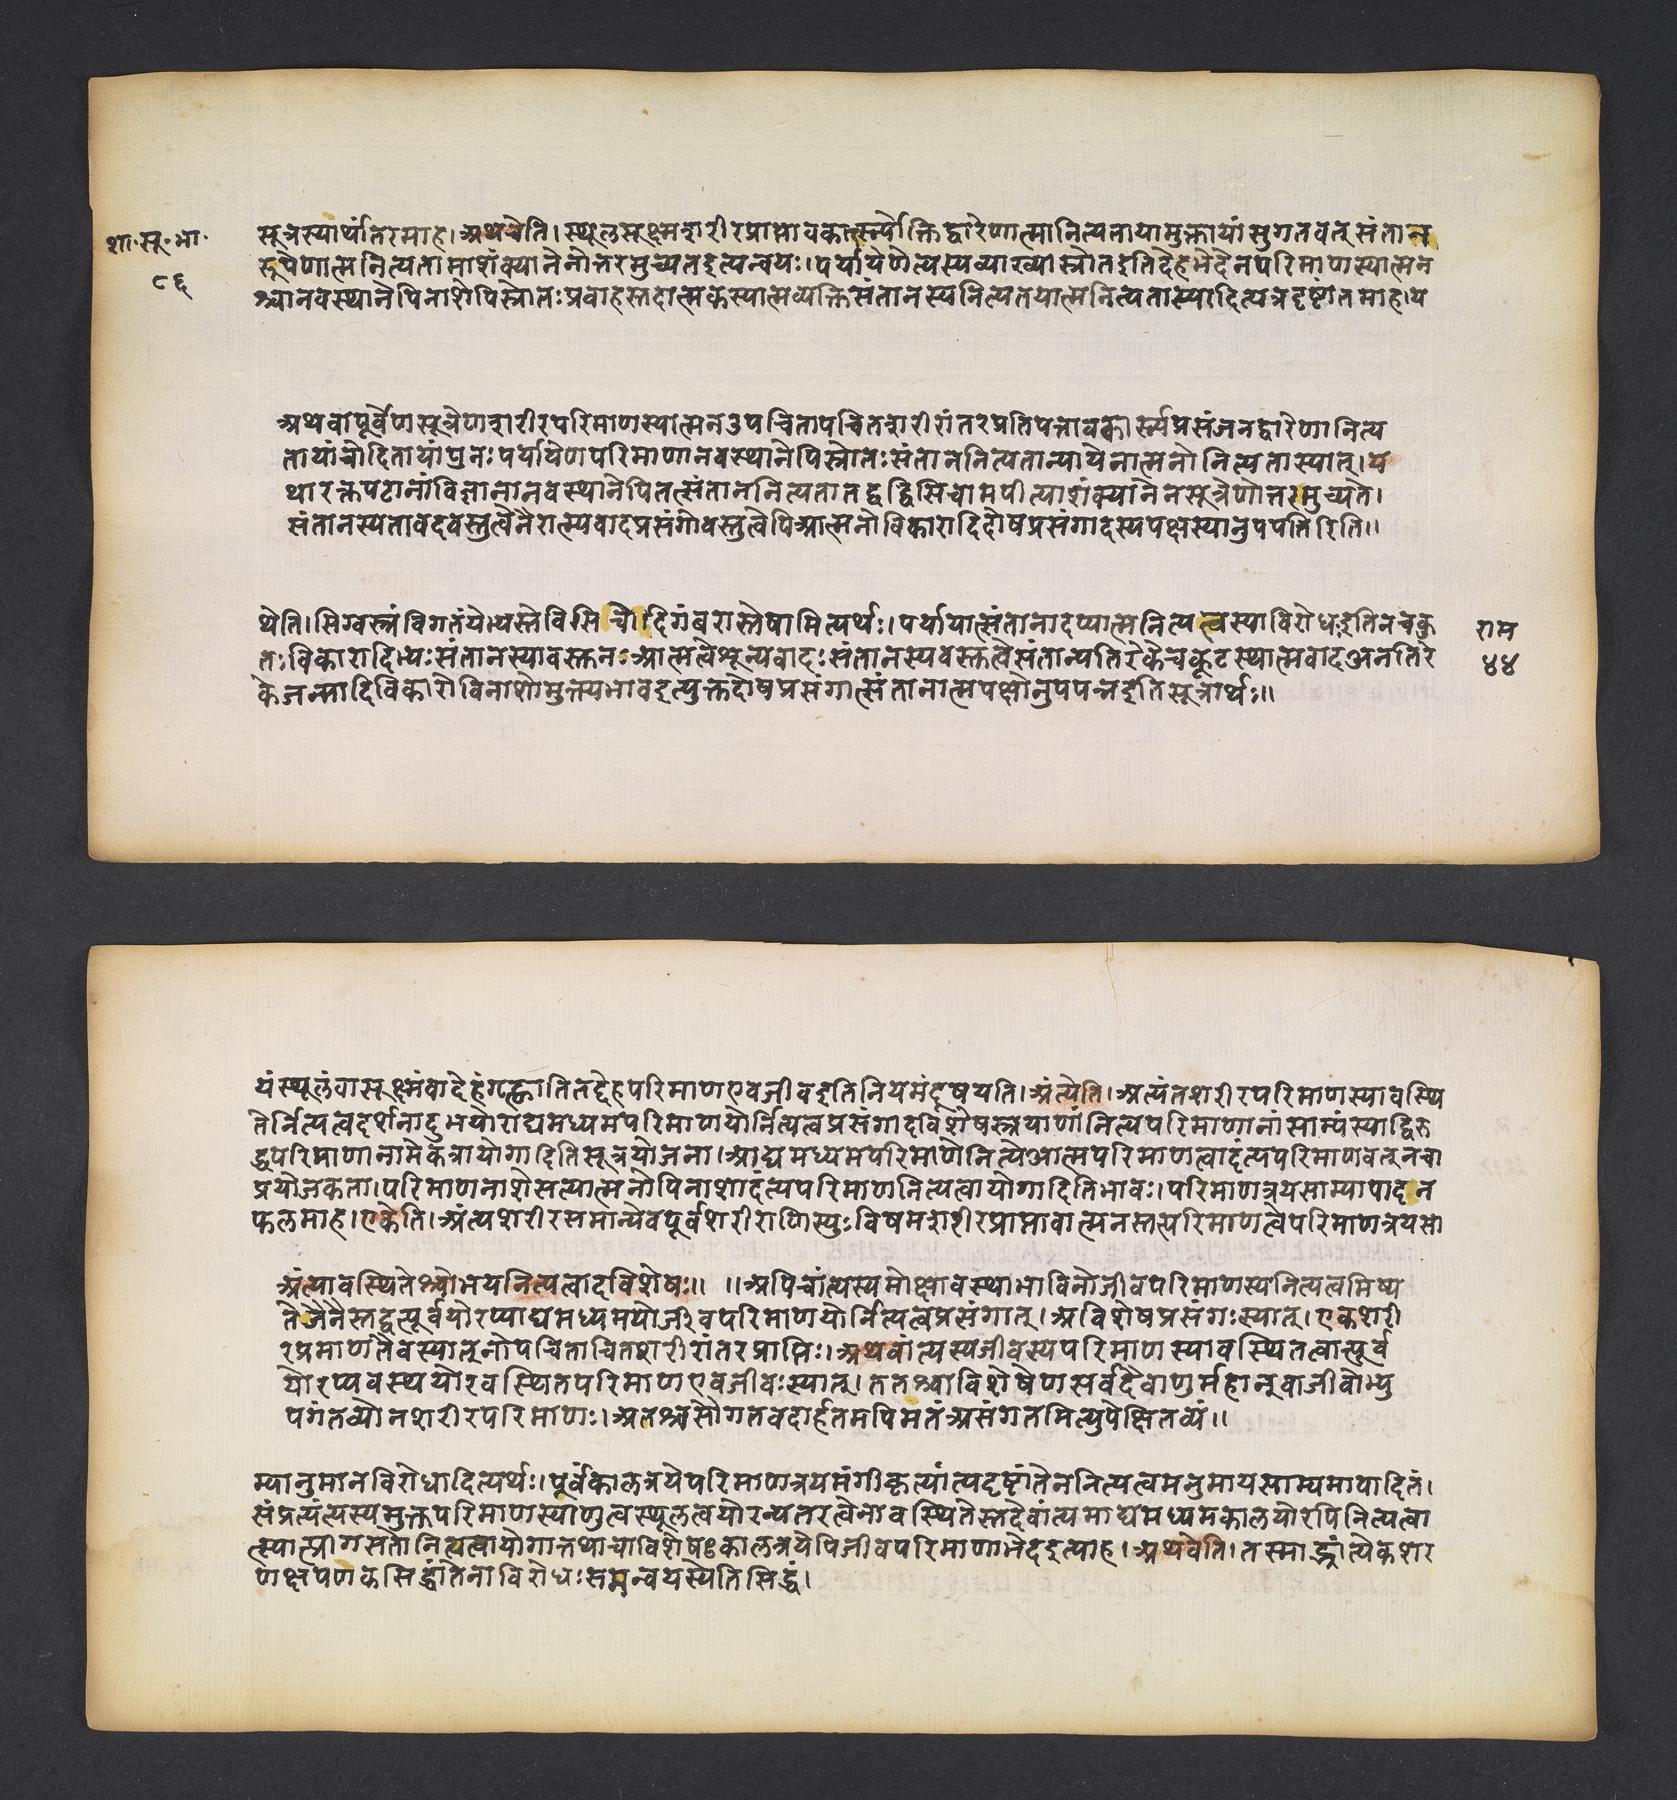 शा॰सू॰भा॰
८६
सूत्रस्यार्थांतरमाह।अथवेति।स्थूलसूक्ष्मशरीरप्राप्तावकार्त्स्न्योक्तिद्वारेणात्मानित्यतायामुक्तायांसुगतवत्संतान
रूपेणात्मनित्यतामाशंक्यानेनोत्तरमुच्यतइत्यन्वयः।पर्यायेणेत्यस्यव्याख्यास्रोतइतिदेहभेदेनपरिमाणस्यात्मन
श्चानवस्थानेपिनाशेपिस्रोतःप्रवाहस्तदात्मकस्यात्मव्यक्तिसंतानस्यनित्यतयात्मनित्यतास्यादित्यत्रदृष्टांतमाह।य
अथवापूर्वेणसूत्रेणशरीरपरिमाणस्यात्मनउपचितापचितशरीरांतरप्रतिपत्तावकार्त्स्न्यप्रसंजनद्वारेणानित्य
तायांचोदितायांपुनःपर्यायेणपरिमाणानवस्थानेपिस्रोतःसंताननित्यतान्यायेनात्मनोनित्यतास्यात्।य
थारक्तपटानांविज्ञानानवस्थानेपितत्संताननित्यतातद्वद्विसिचामपीत्याशंक्यानेनसूत्रेणोत्तरमुच्यते।
संतानस्यतावदवस्तुत्वेनैरात्म्यवादप्रसंगोवस्तुत्वेपिआत्मनोविकारादिदोषप्रसंगादस्यपक्षस्यानुपपत्तिरिति॥
थेति।सिग्वस्त्रंविगतंयेभ्यस्तेविसिचोदिगंबरास्तेषामित्यर्थः।पर्यायात्संतानादप्यात्मनित्यत्वस्याविरोधइतिनचकु
तःविकारादिभ्यःसंतानस्यावस्तुनःआत्मत्वेशून्यवादःसंतानस्यवस्तुत्वेसंतान्यतिरेकेचकूटस्थात्मवादअनतिरे
केजन्मादिविकारोविनाशोमुक्त्यभावइत्युक्तदोषप्रसंगात्संतानात्मपक्षोनुपपन्नइतिसूत्रार्थः॥
राम
४४
यंस्थूलंवासूक्ष्मंवादेहंगृह्णातितद्देहपरिमाणएवजीवइतिनियमंदूषयति।अंत्येति।अत्यंतशरीरपरिमाणस्यावस्थि
तेर्नित्यत्वदर्शनादुभयोराद्यमध्यमपरिमाणयोर्नित्यत्वप्रसंगादविशेषस्त्रयाणांनित्यपरिमाणानांसाम्यंस्याद्विरु
द्धपरिमाणानामेकत्रायोगादितिसूत्रयोजना।आद्यमध्यमपरिमाणेनित्येआत्मपरिमाणत्वादंत्यपरिमाणवत्नचा
प्रयोजकता।परिमाणनाशेसत्यात्मनोपिनाशादंत्यपरिमाणनित्यत्वायोगादितिभावः।परिमाणत्रयसाम्यापादान
फलमाह।एकेति।अंत्यशरीरसमान्येवपूर्वशरीराणिस्युःविषमशरीरप्राप्तावात्मनस्तत्परिमाणत्वेपरिमाणत्रयसा
अंत्यावस्थितेश्चोभयनित्यत्वादविशेषः॥ ॥अपिचांत्यस्यमोक्षावस्थाभाविनोजीवपरिमाणस्यनित्यत्वमिष्य
तेजैनैस्तद्वत्पूर्वयोरप्याद्यमध्यमयोर्जीवपरिमाणयोर्नित्यत्वप्रसंगात्।अविशेषप्रसंगःस्यात्।एकशरी
रप्रमाणतैवस्यात्नोपचिताचितशरीरांतरप्राप्तिः।अथवांत्यस्यजीवस्यपरिमाणस्यावस्थितत्वात्पूर्व
योरप्यवस्थयोरवस्थितपरिमाणएवजीवःस्यात्।ततश्चाविशेषेणसर्वदैवाणुर्महान्वाजीवोभ्यु
पगंतव्योनशरीरपरिमाणः।अतश्चसौगतवदार्हतमपिमतंअसंगतमित्युपेक्षितव्यं॥
म्यानुमानविरोधादित्यर्थः।पूर्वकालत्रयेपरिमाणत्रयमंगीकृत्यांत्यदृष्टांतेननित्यत्वमनुमायसाम्यमापादितं।
संप्रत्यंत्यस्यमुक्तपरिमाणस्याणुत्वस्थूलत्वयोरन्यतरत्वेनावस्थितेस्तदेवांत्यमाद्यमध्यमकालयोरपिनित्यत्वा
त्स्यात्प्रागसतोनित्यत्वायोगात्तथाचाविशेषःकालत्रयेपिजीवपरिमाणाभेदइत्याह।अथवेति।तस्माद्भ्रांत्येकशर
णक्षपणकसिद्धांतेनाविरोधःसमन्वयस्येतिसिद्धं।